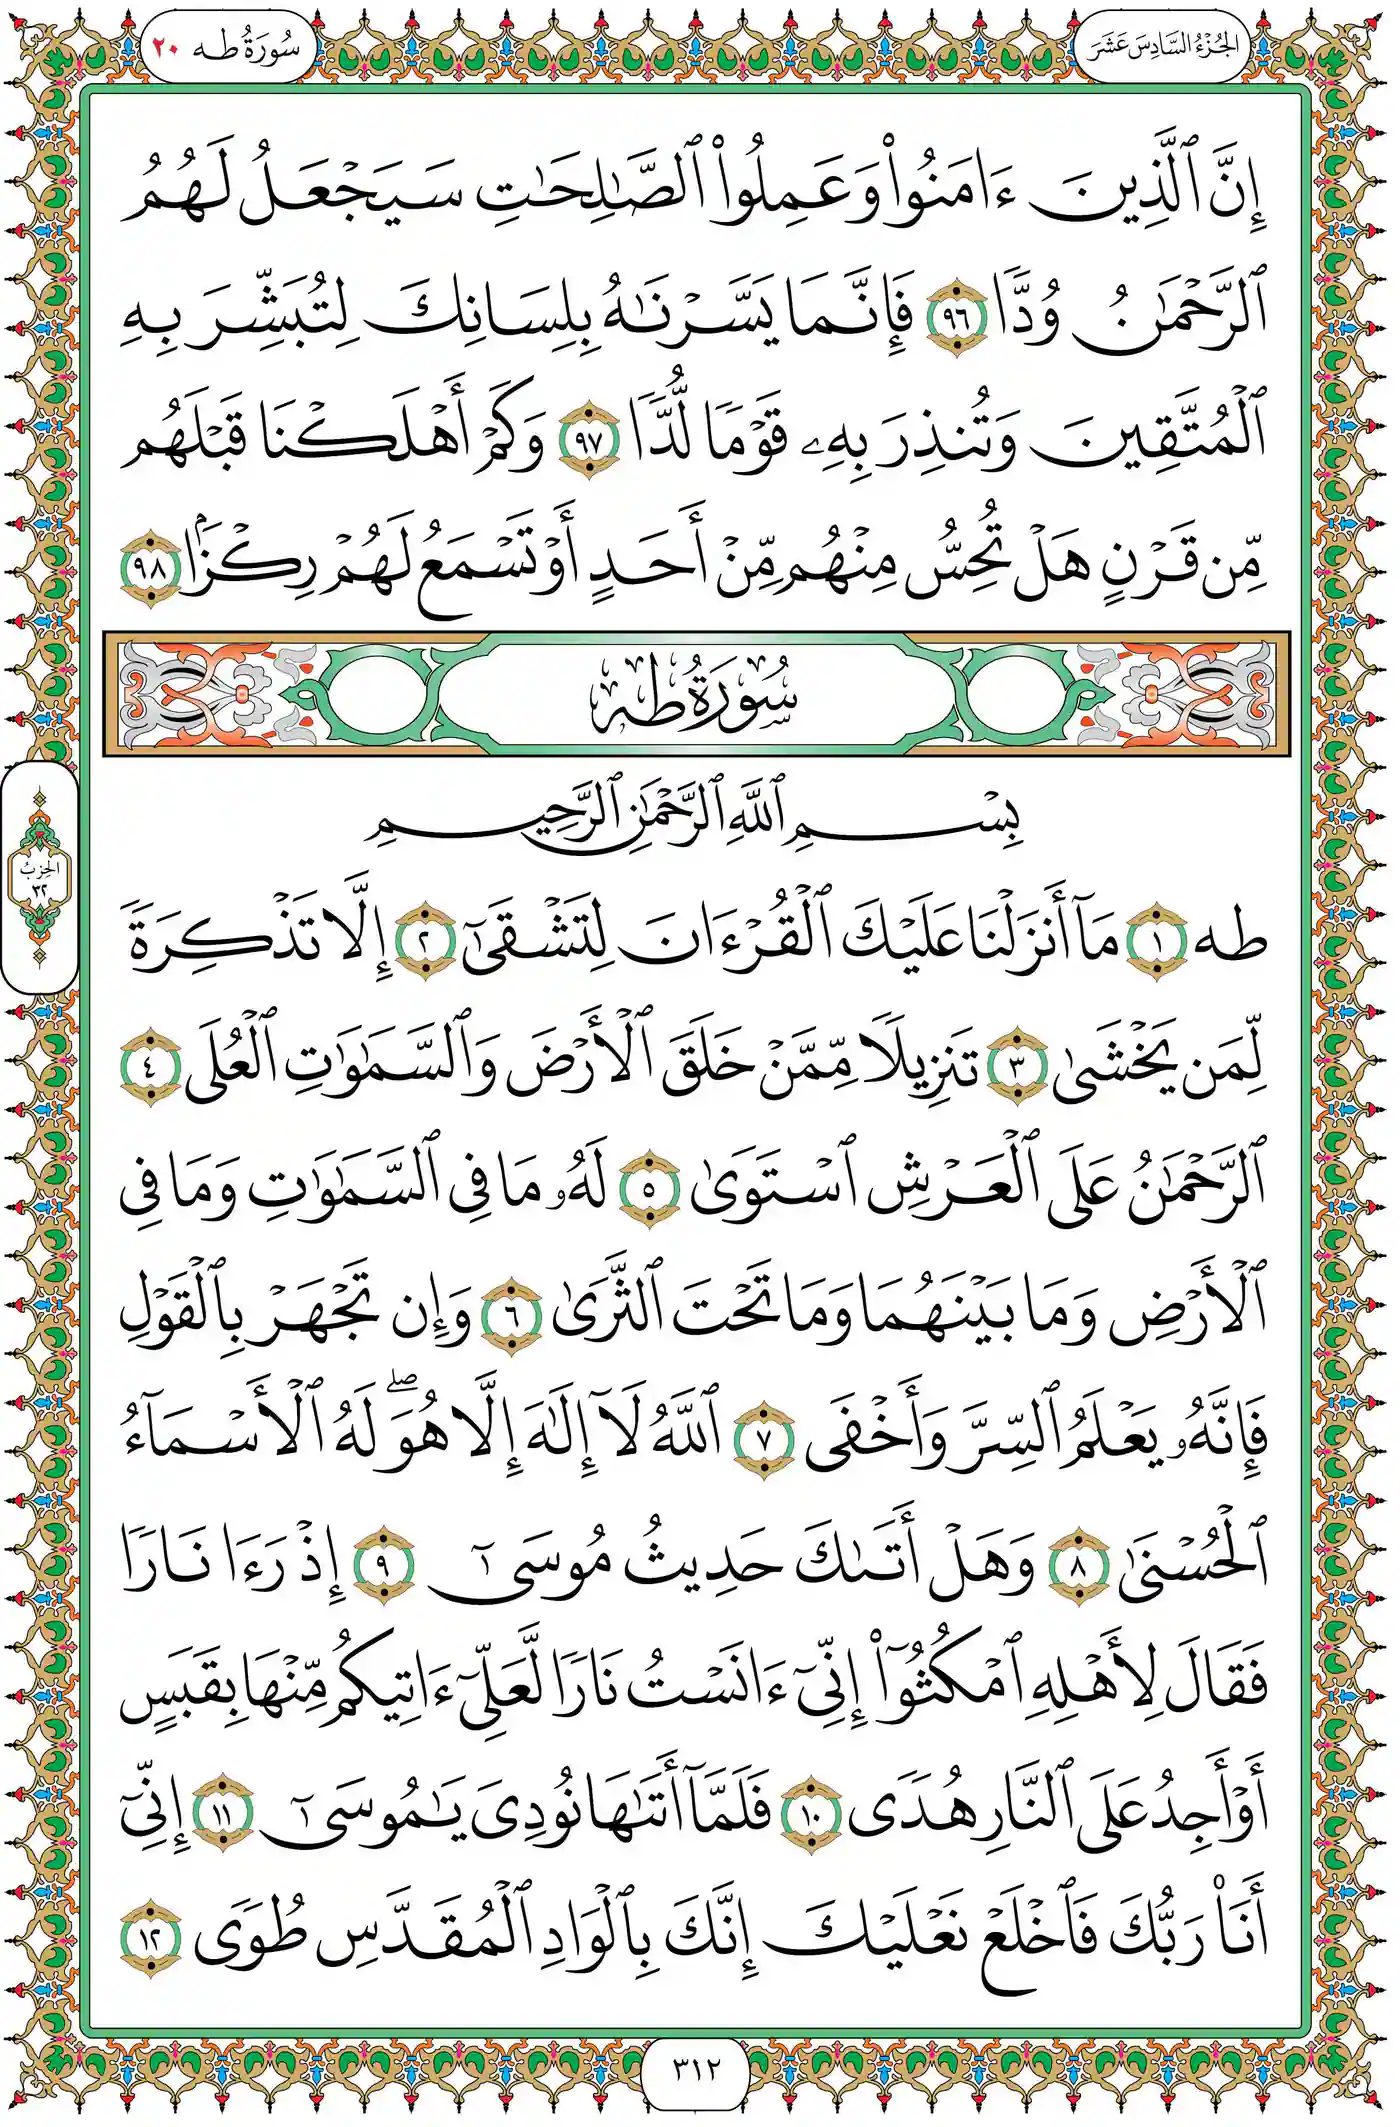 الجُزْءُ السَّادِسَ عَشَرَ
سُورَةُ طه ٢٠
إِنَّ ٱلَّذِينَ ءَامَنُوا۟ وَعَمِلُوا۟ ٱلصَّٰلِحَٰتِ سَيَجْعَلُ لَهُمُ
ٱلرَّحْمَٰنُ وُدًّا ٩٦ فَإِنَّمَا يَسَّرْنَٰهُ بِلِسَانِكَ لِتُبَشِّرَ بِهِ
ٱلْمُتَّقِينَ وَتُنذِرَ بِهِۦ قَوْمًا لُّدًّا ٩٧ وَكَمْ أَهْلَكْنَا قَبْلَهُم
مِّن قَرْنٍ هَلْ تُحِسُّ مِنْهُم مِّنْ أَحَدٍ أَوْ تَسْمَعُ لَهُمْ رِكْزًۢا ٩٨
سُورَةُ طه
بِسْمِ ٱللَّهِ ٱلرَّحْمَٰنِ ٱلرَّحِيمِ
طه ١ مَآ أَنزَلْنَا عَلَيْكَ ٱلْقُرْءَانَ لِتَشْقَىٰٓ ٢ إِلَّا تَذْكِرَةً
لِّمَن يَخْشَىٰ ٣ تَنزِيلًا مِّمَّنْ خَلَقَ ٱلْأَرْضَ وَٱلسَّمَٰوَٰتِ ٱلْعُلَى ٤
ٱلرَّحْمَٰنُ عَلَى ٱلْعَرْشِ ٱسْتَوَىٰ ٥ لَهُۥ مَا فِى ٱلسَّمَٰوَٰتِ وَمَا فِى
ٱلْأَرْضِ وَمَا بَيْنَهُمَا وَمَا تَحْتَ ٱلثَّرَىٰ ٦ وَإِن تَجْهَرْ بِٱلْقَوْلِ
فَإِنَّهُۥ يَعْلَمُ ٱلسِّرَّ وَأَخْفَى ٧ ٱللَّهُ لَآ إِلَٰهَ إِلَّا هُوَ ۖ لَهُ ٱلْأَسْمَآءُ
ٱلْحُسْنَىٰ ٨ وَهَلْ أَتَىٰكَ حَدِيثُ مُوسَىٰٓ ٩ إِذْ رَءَا نَارًا
فَقَالَ لِأَهْلِهِ ٱمْكُثُوٓا۟ إِنِّىٓ ءَانَسْتُ نَارًا لَّعَلِّىٓ ءَاتِيكُم مِّنْهَا بِقَبَسٍ
أَوْ أَجِدُ عَلَى ٱلنَّارِ هُدًى ١٠ فَلَمَّآ أَتَىٰهَا نُودِىَ يَٰمُوسَىٰٓ ١١ إِنِّىٓ
أَنَا۠ رَبُّكَ فَٱخْلَعْ نَعْلَيْكَ إِنَّكَ بِٱلْوَادِ ٱلْمُقَدَّسِ طُوًى ١٢
الحِزْبُ
٣٢
٣١٢